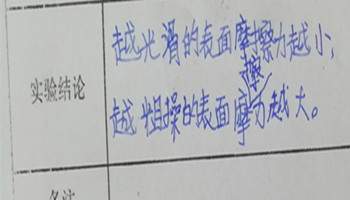 越光滑的表面摩擦力越小；
实验结论
越粗操的表面摩擦力越大。
备注